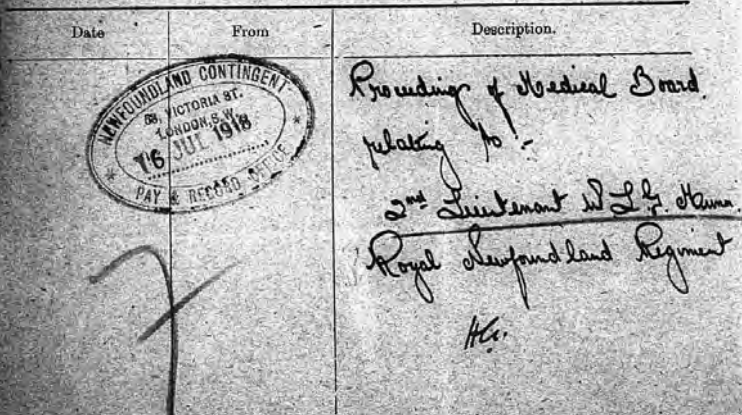 Date
From
Description.
NEWFOUNDLAND CONTINGENT
58, VICTORIA ST.
LONDON, S.W.
16 JUL 1918
PAY & RECORD OFFICE
7
Proceedings of Medical Board
relating to :-
2nd Lieutenant W L. G. Munn.
Royal Newfoundland Regiment